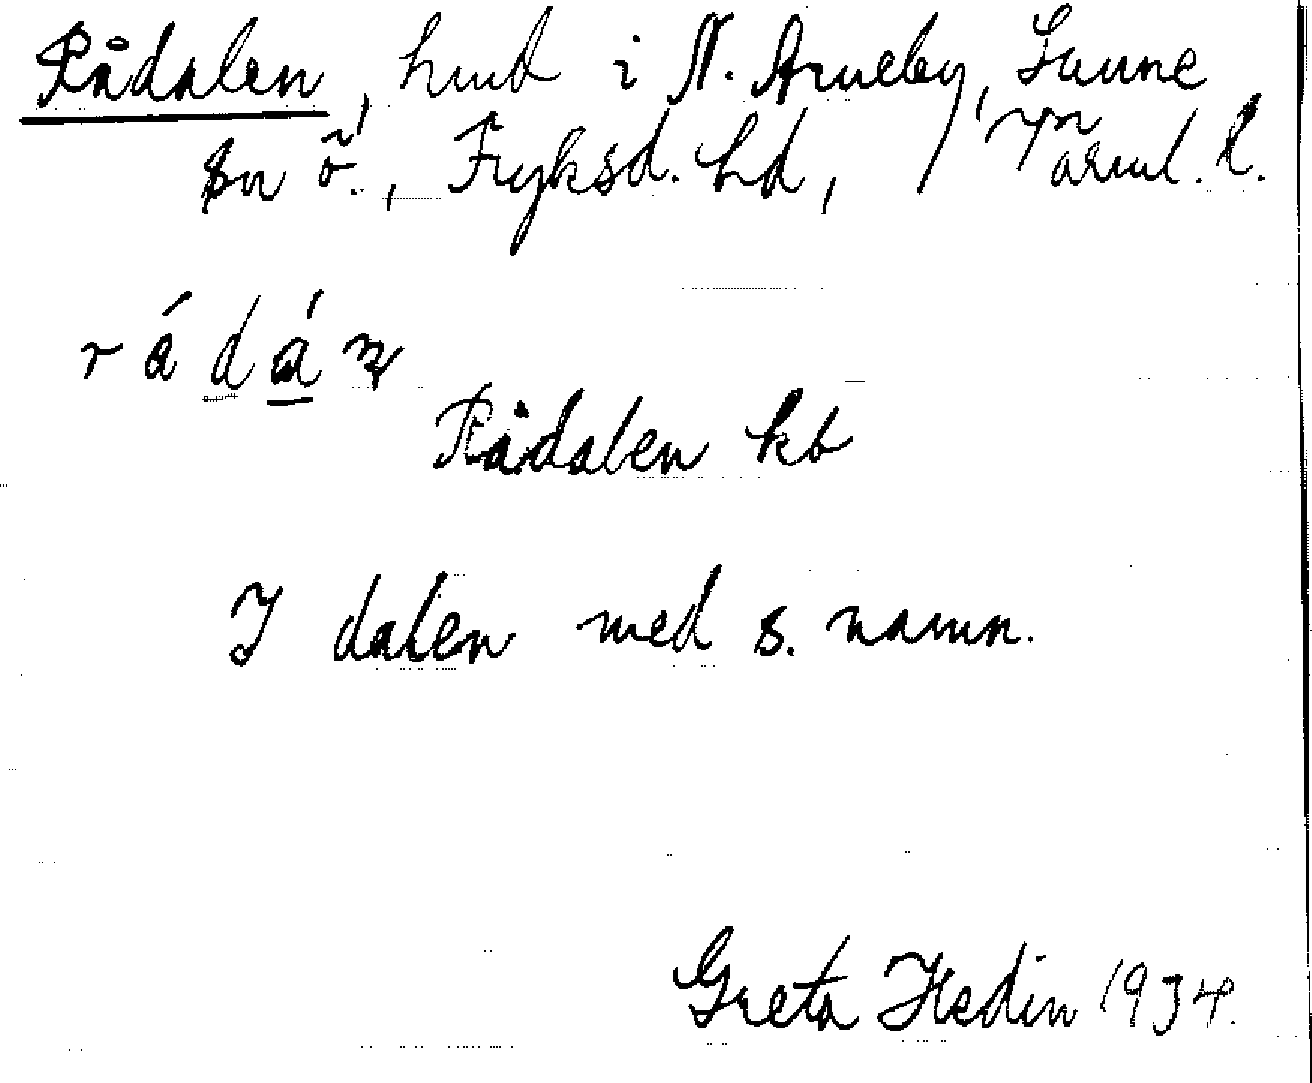 Rådalen, hmd i N. Årneby, Sunne
sn ö., Fryksd. hd, Värml. l.
r å d á n
Rådalen kb
I dalen med s. namn.
Greta Hedin 1934.